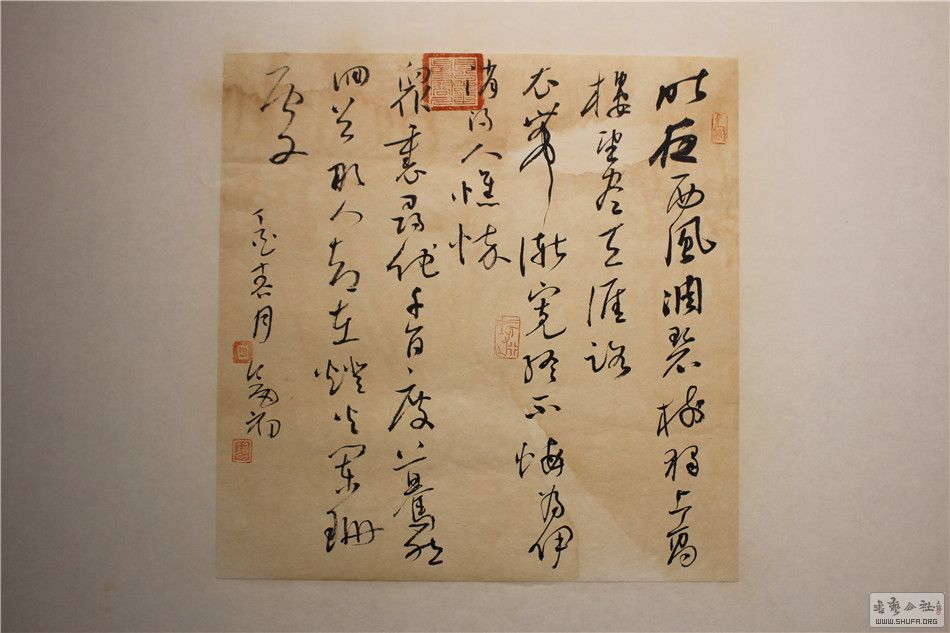 昨夜西風凋碧樹獨上高
樓望尽天涯路
衣帶漸寬終不悔为伊
消得人憔悴
眾裏尋他千百度驀然
回首那人却在燈火闌珊
處
丁亥春月
WWW.SHUFA.ORG